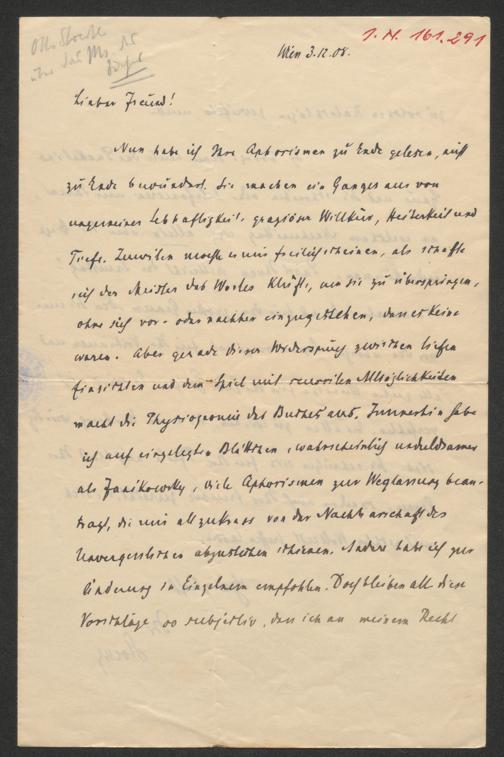 I.N. 161.291
Otto Stoessl
Wien 3.12.08.
Lieber Freund!
Nun habe ich Ihre Aphorismen zu Ende gelesen, nicht
zu Ende bewundert. Sie machen ein Ganzes aus von
ungemeiner Lebhaftigkeit, graziöser Willkür, Heiterkeit und
Tiefe. Zuweilen mochte es mir freilich scheinen, als schaffe
sich der Meister des Wortes Klüfte, um sie zu überspringen,
ohne sich vor- oder nachher einzugestehen, dass es keine
waren. Aber gerade dieser Widerspruch zwischen tiefen
Einsichten und dem Spiel mit sensorilen Allmöglichkeiten
macht die Physiognomie des Buches aus. Immerhin habe
ich auf eingelegten Blättchen, wahrscheinlich unduldsamer
als Janikowsky, viele Aphorismen zur Weglassung bean-
tragt, die mir allzukrass von der Nachbarschaft des
Unvergesslichen abzustechen schienen. Andere habe ich zur
Änderung in Einzelnem empfohlen. Doch bleiben all diese
Vorschläge so subjectiv, dass ich an meinem Recht